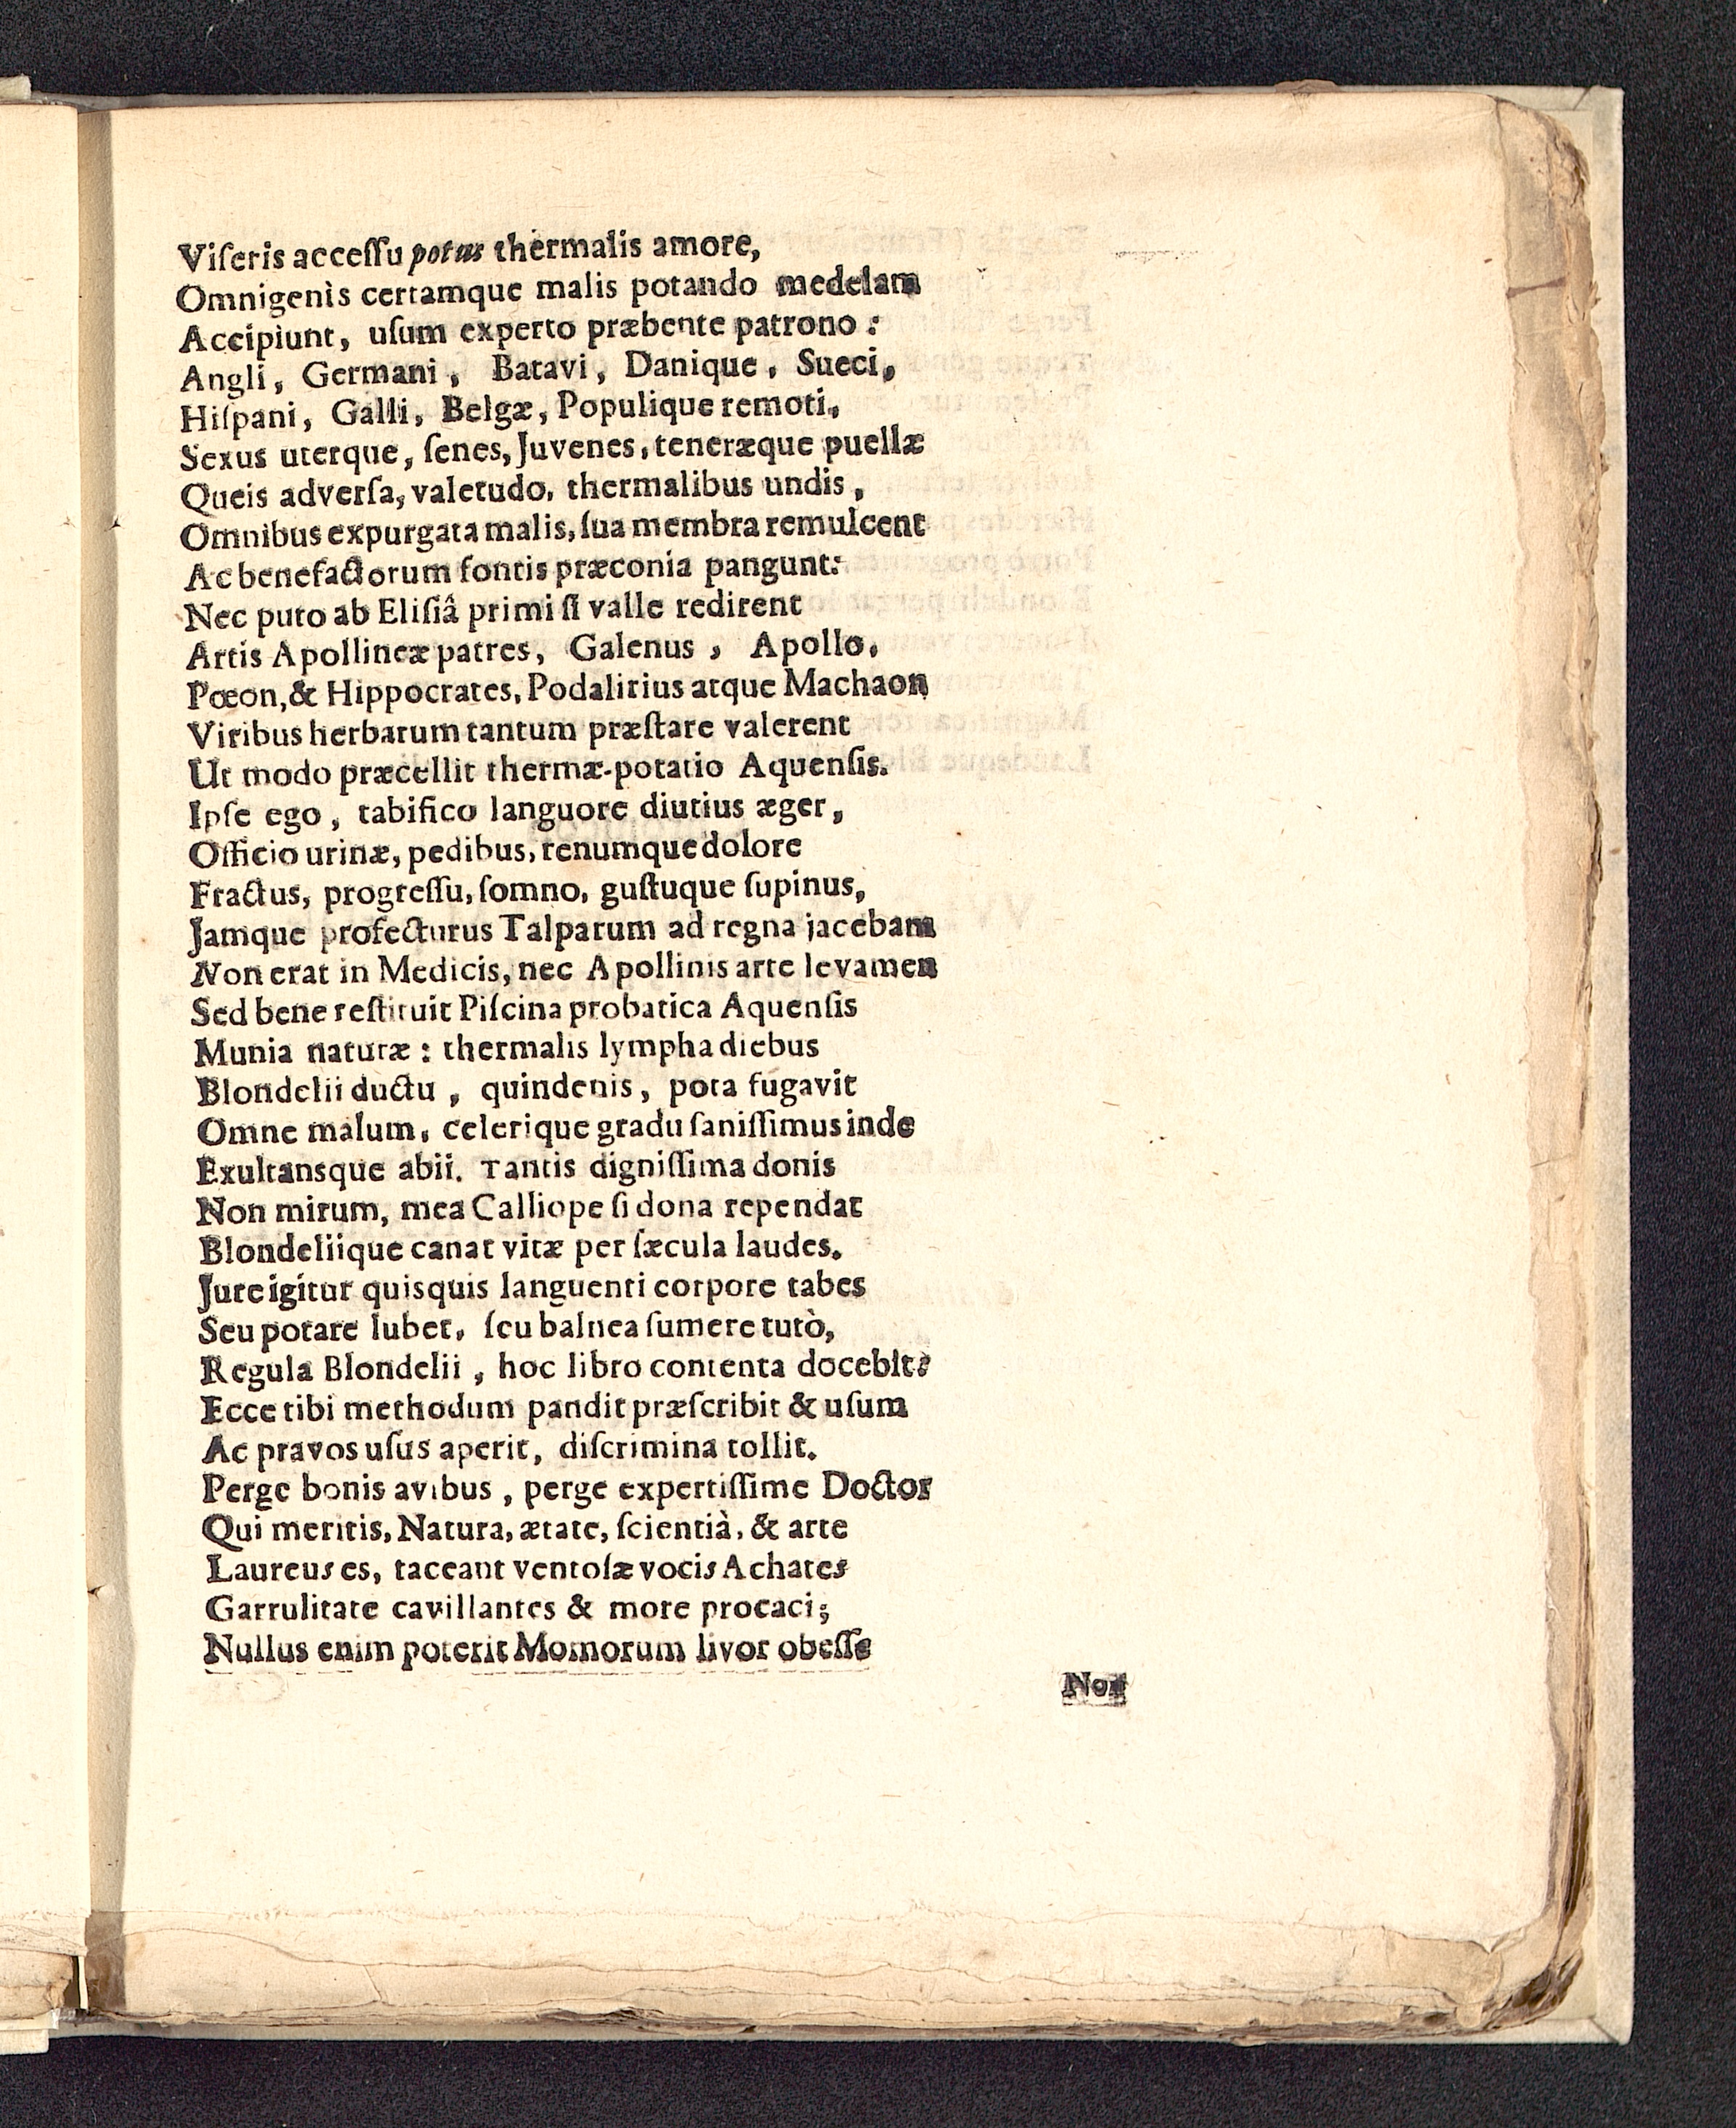 Viſeris acceſſu potus thermalis amore,
Omnigenìs certamque malis potando medelam
Accipiunt, uſum experto præbente patrono:
Angli, Germani, Batavi, Danique, Sueci,
Hiſpani, Galli, Belgæ, Populique remoti,
Sexus uterque, ſenes, Juvenes, teneræque puellæ
Queis adverſa, valetudo, thermalibus undis,
Omnibus expurgata malis, ſua membra remulcent
Ac benefactorum fontis præconia pangunt:
Nec puto ab Eliſiâ primi ſi valle redirent
Artis Apollineæ patres, Galenus, Apollo,
Pœon, & Hippocrates, Podalirius atque Machaon
Viribus herbarum tantum præſtare valerent
Ut modo præcellit thermæ-potatio Aquenſis.
Ipſe ego, tabifico languore diutius æger,
Officio urinæ, pedibus, renumque dolore
Fractus, progreſſu, ſomno, guſtuque ſupinus,
Jamque profecturus Talparum ad regna jacebam
Non erat in Medicis, nec Apollinis arte levamen
Sed bene reſtituit Piſcina probatica Aquenſis
Munia naturæ: thermalis lympha diebus
Blondelii ductu, quindenis, pota fugavit
Omne malum, celerique gradu ſaniſſimus inde
Exultansque abii. Tantis digniſſima donis
Non mirum, mea Calliope ſi dona rependat
Blondeliique canat vitæ per ſæcula laudes.
Jure igitur quisquis languenti corpore tabes
Seu potare lubet, ſeu balnea ſumere tutò,
Regula Blondelii, hoc libro contenta docebit:
Ecce tibi methodum pandit præſcribit & uſum
Ac pravos uſus aperit, diſcrimina tollit.
Perge bonis avibus, perge expertiſſime Doctor
Qui meritis, Natura, ætate, ſcientià, & arte
Laureus es, taceant ventoſæ vocis Achates
Garrulitate cavillantes & more procaci;
Nullus enim poterit Momorum livor obeſſe